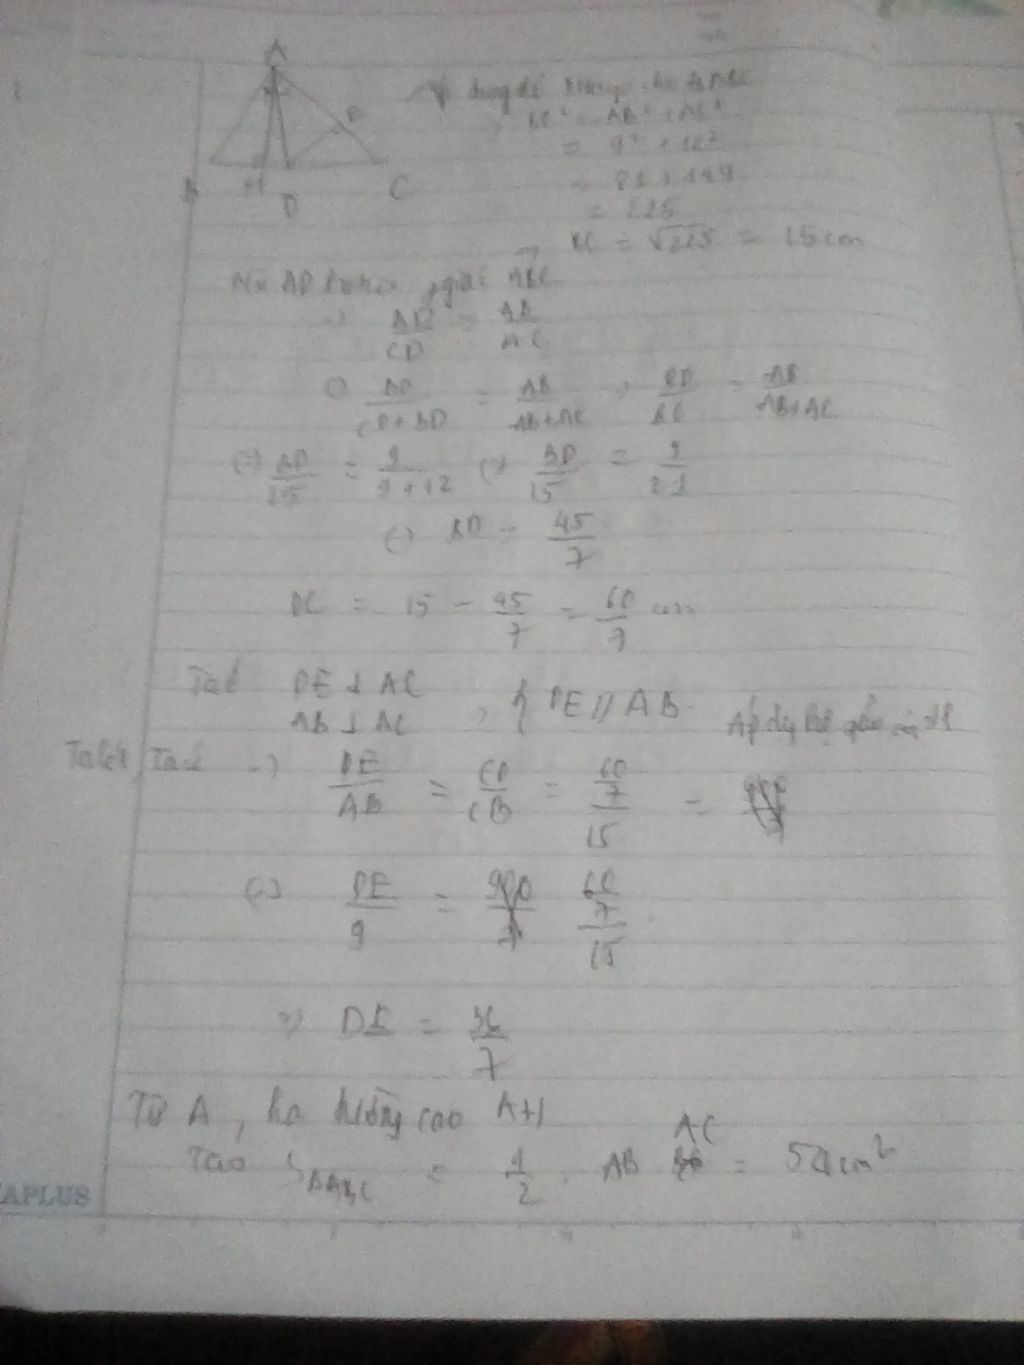 A
E
B H D C
Áp dụng ΔABC
BC² = AB² + AC²
= 9² + 12²
= 81 + 144
= 225
→ BC = √225 = 15 cm
AD giác ABC
→ BD/CD = AB/AC
BD/CD+BD = AB/AB+AC → BD/BC = AB/AB+AC
(=) BD/15 = 9/9+12 (=) BD/15 = 9/21
(=) BD = 45/7
DC = 15 - 45/7 = 60/7 cm
Ta có DE ⊥ AC
AB ⊥ AC → DE // AB Áp dụng hệ quả
Talét, Ta có → DE/AB = CD/CB = 60/7/15 =
(=) DE/9 = 60/7/15
=> DE = 36/7
Từ A, hạ đường cao AH
Ta có SΔABC = 1/2 . AB AC = 54 cm²
APLUS